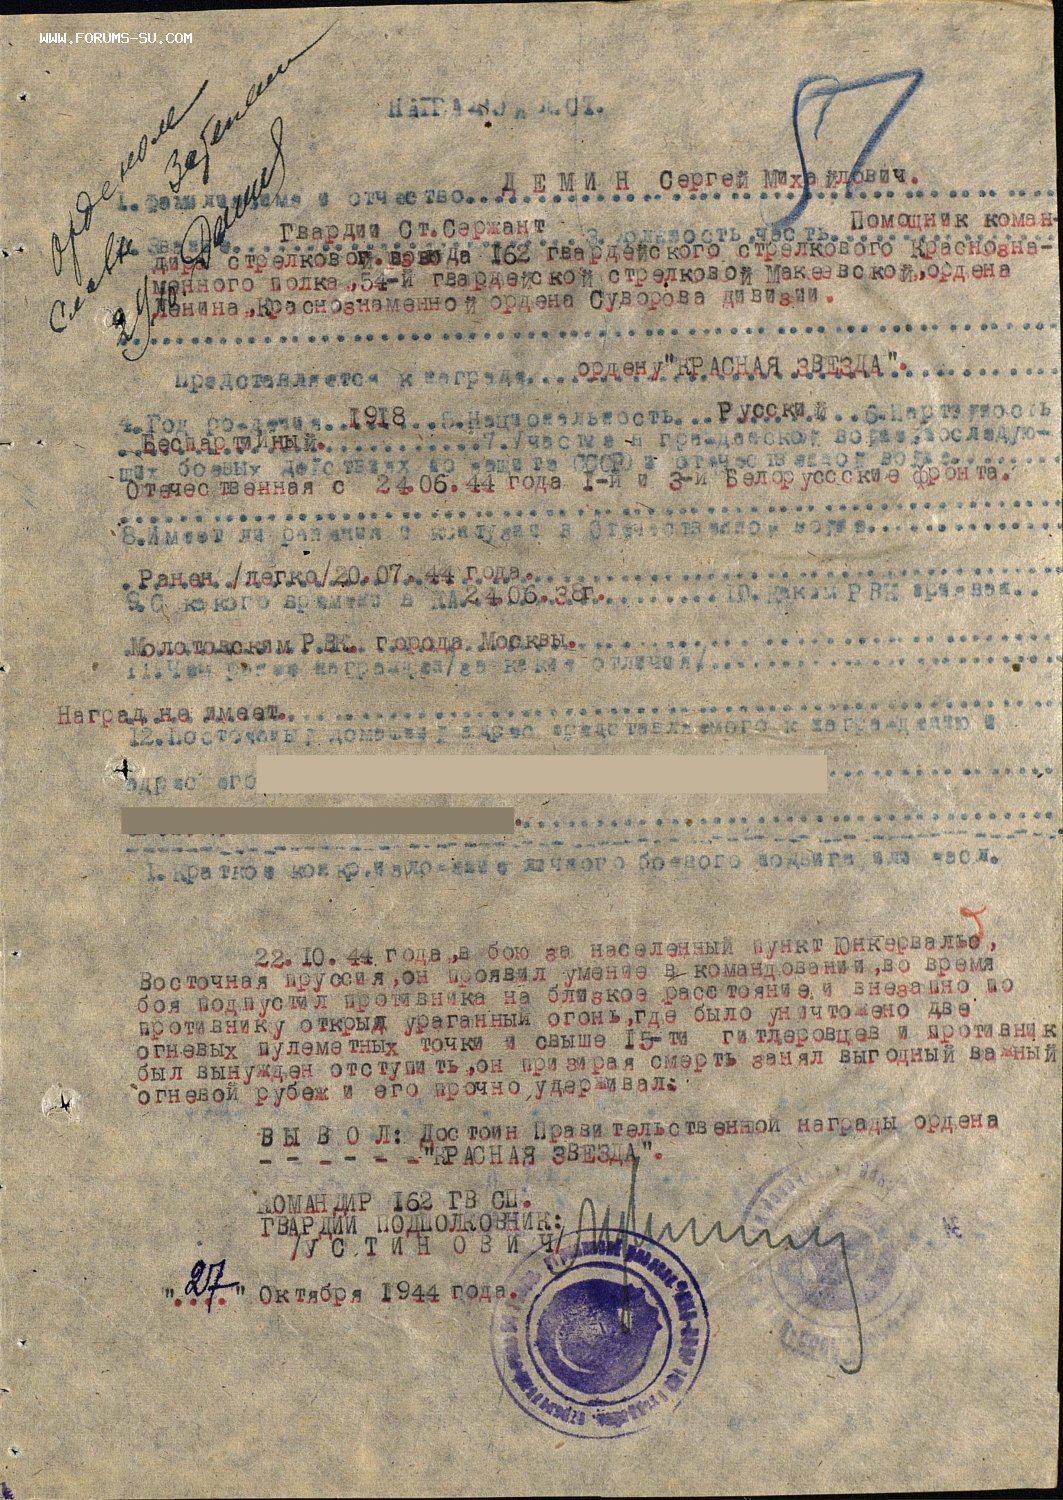 WWW.FORUMS-SU.COM
НАГРАДНОЙ ЛИСТ.
57
орденом
Славы
ДЕМИН Сергей Михайлович.
1. Фамилия, имя и отчество
Гвардии Ст.Сержант
Звание
3. должность, часть
Помощник коман-
дира стрелкового взвода 162 гвардейского стрелкового Краснозна-
менного полка, 54-й гвардейской стрелковой Макеевской, ордена
Ленина, Краснознаменной ордена Суворова дивизии.
Представляется к награде ордену "КРАСНАЯ ЗВЕЗДА".
4. Год рождения 1918 5. Национальность Русский 6. Партийность
Беспартийный. 7. Участие в гражданской войне, последую-
щих боевых действиях по защите СССР и отечественной войне
Отечественная с 24.06.44 года 1-й и 3-й Белорусские фронта.
8. Имеет ли ранения и контузии в Отечественной войне
Ранен /легко/20.07.44 года.
9. С какого времени в КА 24.06.38г. 10. Каким РВК призван
Молотовским РВК. города Москвы.
11. Чем ранее награжден/за какие отличия/
Наград не имеет.
12. Постоянный домашний адрес представляемого к награждению и
адрес его
1. Краткое конкр. изложение личного боевого подвига или засл.
22.10.44 года, в бою за населенный пункт Юнкервальс,
Восточная пруссия, он проявил умение в командовании, во время
боя подпустил противника на близкое расстояние и внезапно по
противнику открыл ураганный огонь, где было уничтожено две
огневых пулеметных точки и свыше 15-ти гитлеровцев и противник
был вынужден отступить, он призирая смерть занял выгодный важный
огневой рубеж и его прочно удерживал.
ВЫВОЛ: Достоин Правительственной награды ордена
"КРАСНАЯ ЗВЕЗДА".
КОМАНДИР 162 ГВ СП.
ГВАРДИИ ПОДПОЛКОВНИК:
/УСТИНОВИЧ/
"27" Октября 1944 года.